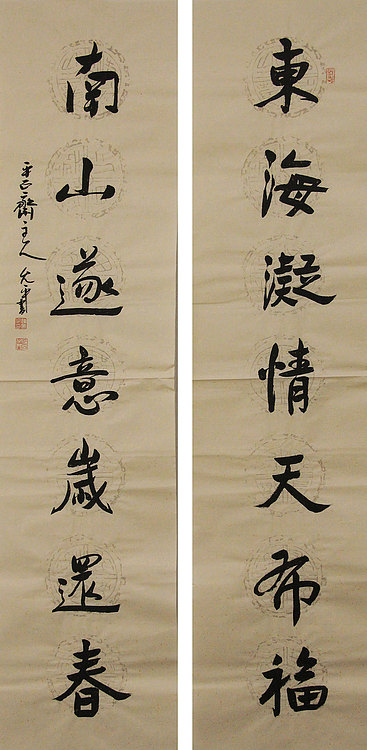 東海凝情天布福
南山遂意歲還春
平正齋主人